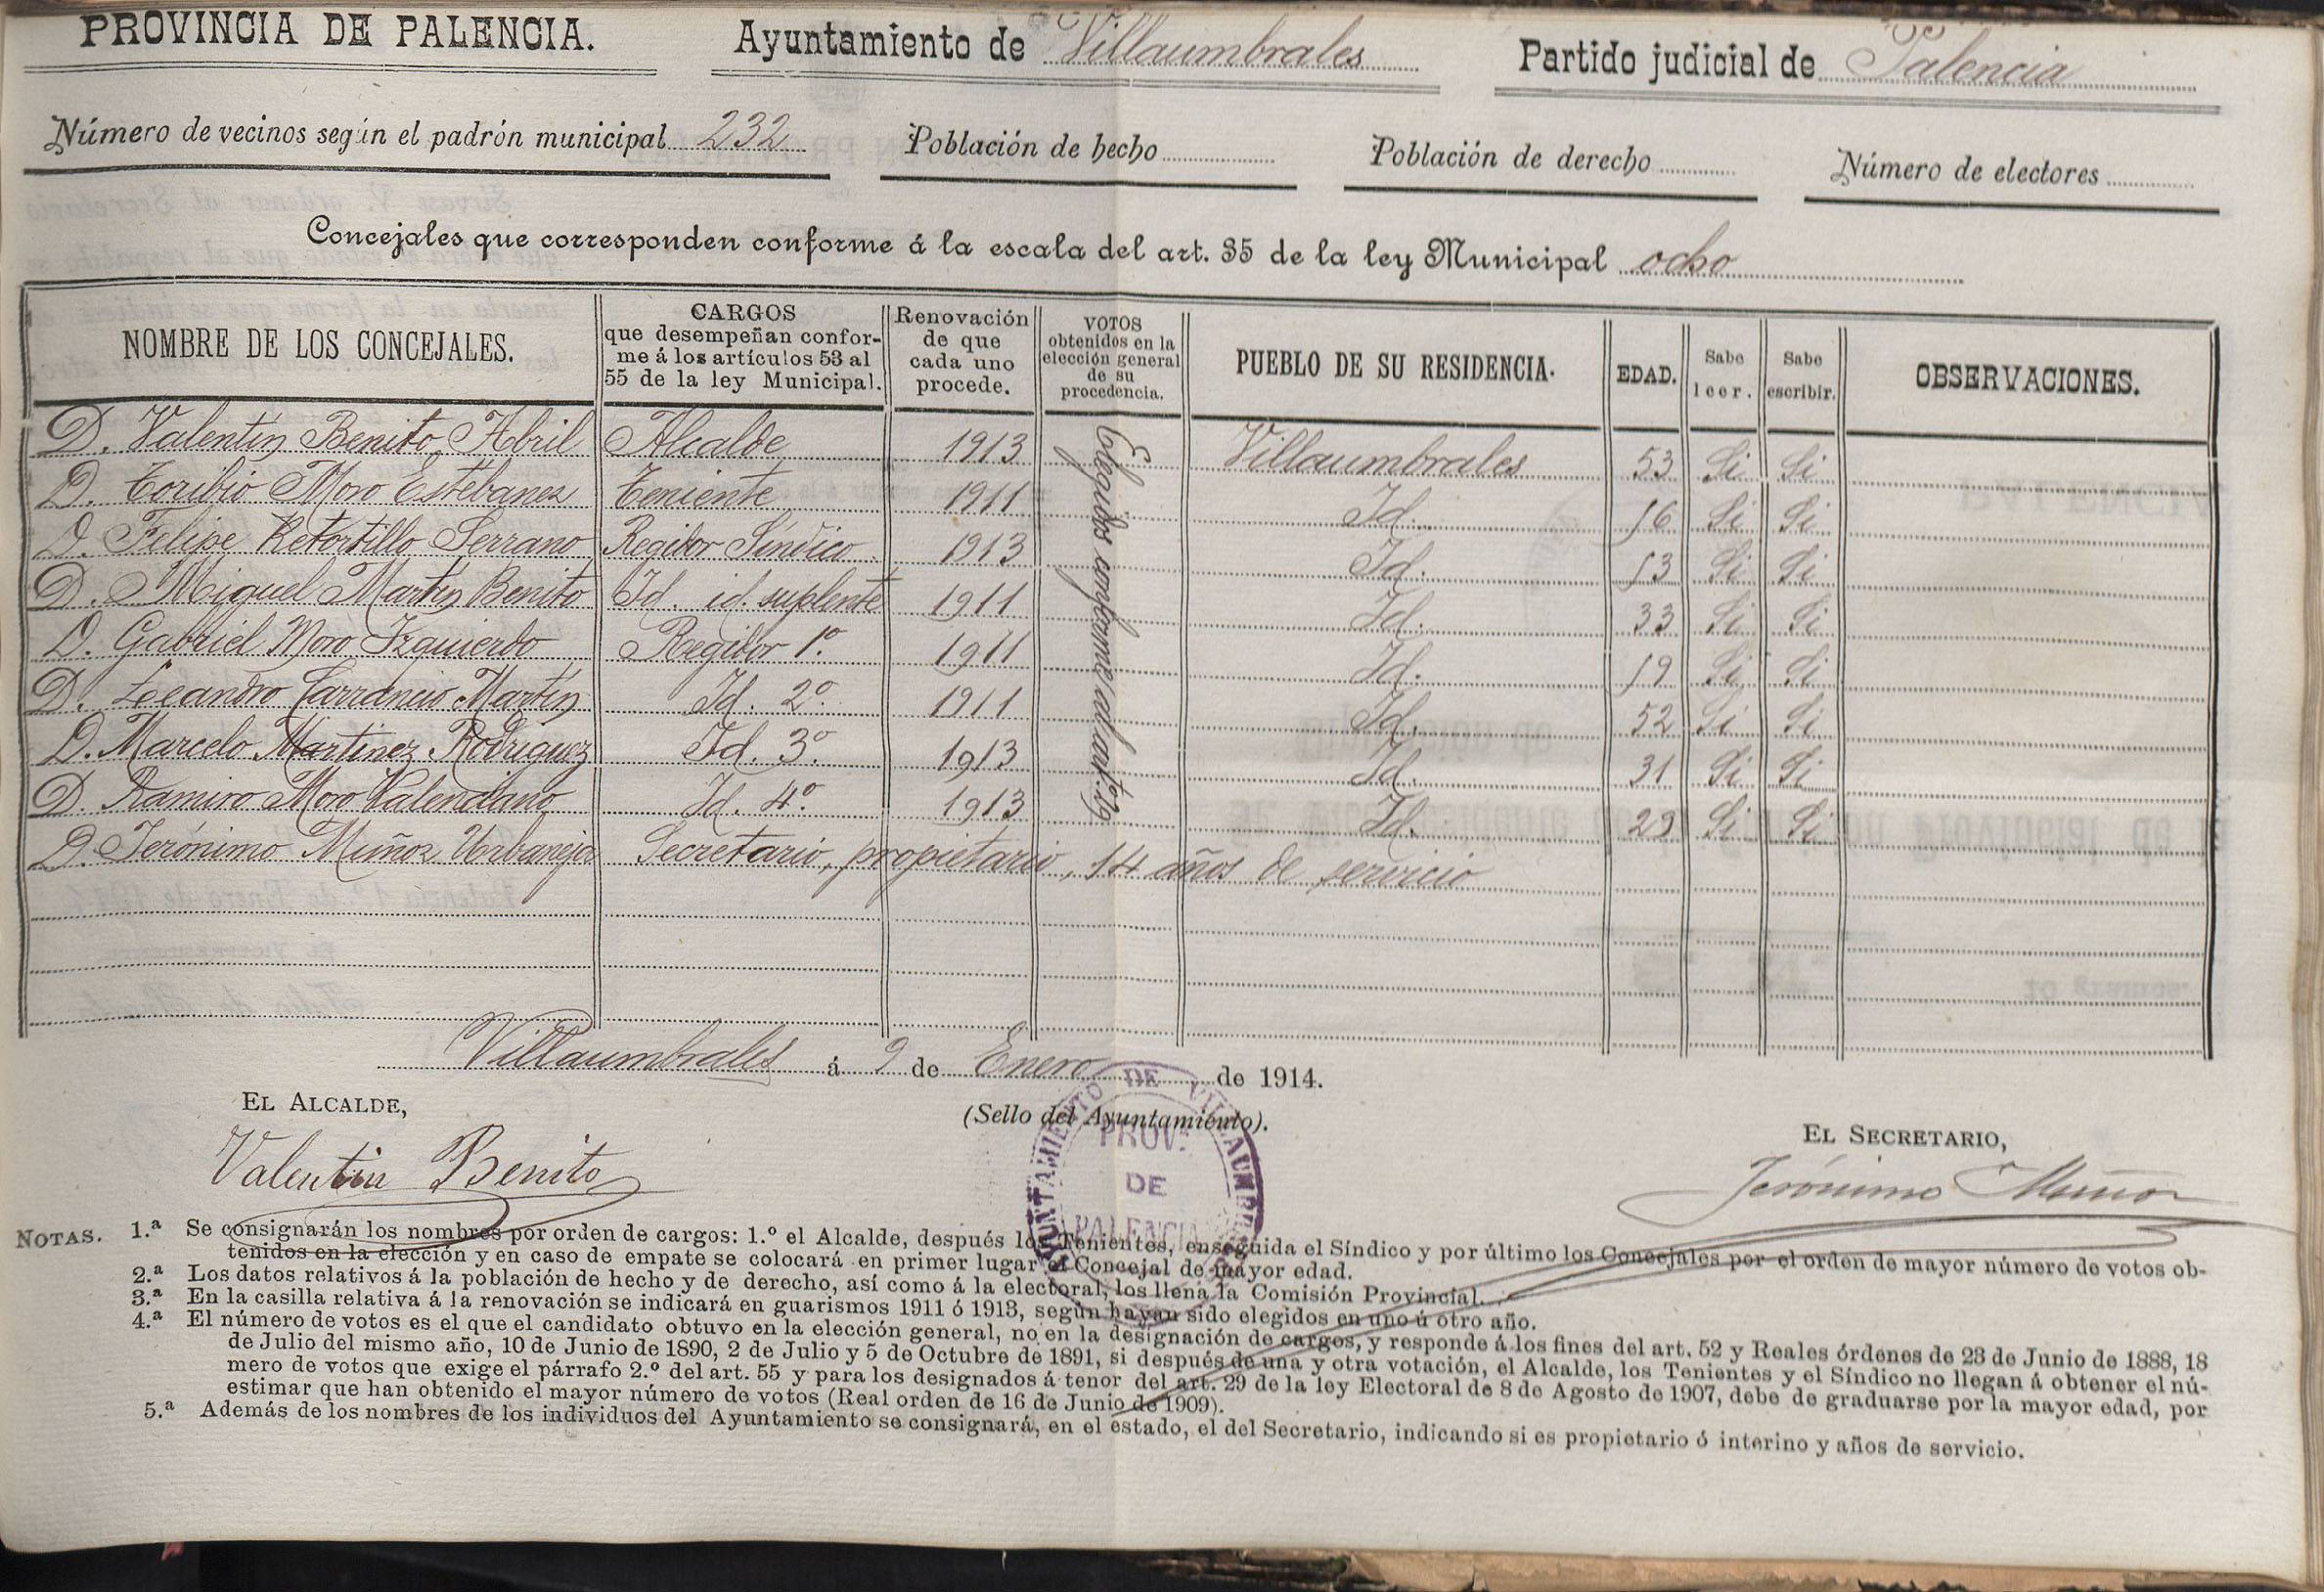 PROVINCIA DE PALENCIA. Ayuntamiento de Villaumbrales Partido judicial de Palencia
Número de vecinos según el padrón municipal 232 Población de hecho Población de derecho Número de electores
Concejales que corresponden conforme á la escala del art. 35 de la ley Municipal ocho
NOMBRE DE LOS CONCEJALES. CARGOS que desempeñan conforme á los artículos 53 al 55 de la ley Municipal. Renovación de que cada uno procede. VOTOS obtenidos en la elección general de su procedencia. PUEBLO DE SU RESIDENCIA. EDAD. Sabe leer. Sabe escribir. OBSERVACIONES.
D. Valentín Benito Abril Alcalde 1913 Villaumbrales 53 Si Si
D. Toribio Moro Estebanez Teniente 1911 Id. 56 Si Si
D. Felipe Retortillo Serrano Regidor Síndico 1913 Id. 53 Si Si
D. Miguel Martín Benito Id. id. suplente 1911 Id. 33 Si Si
D. Gabriel Moro Izquierdo Regidor 1º. 1911 Id. 59 Si Si
D. Leandro Carrancio Martín Id. 2º. 1911 Id. 52 Si Si
D. Marcelo Martinez Rodriguez Id. 3º. 1913 Id. 31 Si Si
D. Ramiro Moro Valenciano Id. 4º. 1913 Id. 29 Si Si
D. Jerónimo Muñoz Urbaneja Secretario, propietario, 14 años de servicio
Elegidos conforme al art. 29
Villaumbrales á 9 de Enero de 1914.
EL ALCALDE,
(Sello del Ayuntamiento).
EL SECRETARIO,
Valentin Benito
Jerónimo Muñoz
AYUNTAMIENTO DE VILLAUMBRALES
PROV.
DE
PALENCIA
NOTAS. 1.ª Se consignarán los nombres por orden de cargos: 1.º el Alcalde, después los Tenientes, enseguida el Síndico y por último los Concejales por el orden de mayor número de votos ob-
tenidos en la elección y en caso de empate se colocará en primer lugar el Concejal de mayor edad.
2.ª Los datos relativos á la población de hecho y de derecho, así como á la electoral, los llena la Comisión Provincial.
3.ª En la casilla relativa á la renovación se indicará en guarismos 1911 ó 1913, según hayan sido elegidos en uno ú otro año.
4.ª El número de votos es el que el candidato obtuvo en la elección general, no en la designación de cargos, y responde á los fines del art. 52 y Reales órdenes de 23 de Junio de 1888, 18
de Julio del mismo año, 10 de Junio de 1890, 2 de Julio y 5 de Octubre de 1891, si después de una y otra votación, el Alcalde, los Tenientes y el Síndico no llegan á obtener el nú-
mero de votos que exige el párrafo 2.º del art. 55 y para los designados á tenor del art. 29 de la ley Electoral de 8 de Agosto de 1907, debe de graduarse por la mayor edad, por
estimar que han obtenido el mayor número de votos (Real orden de 16 de Junio de 1909).
5.ª Además de los nombres de los individuos del Ayuntamiento se consignará, en el estado, el del Secretario, indicando si es propietario ó interino y años de servicio.